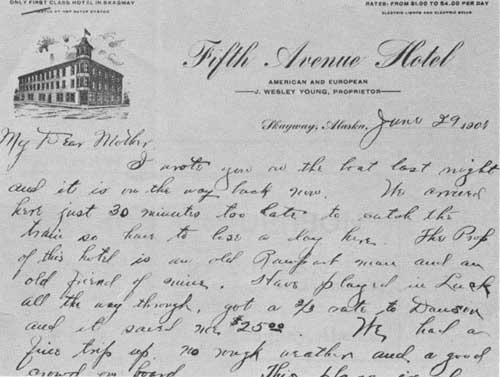 ONLY FIRST CLASS HOTEL IN SKAGWAY
RATES: FROM $1.00 TO $4.00 PER DAY
ELECTRIC LIGHTS AND ELECTRIC BELLS
Fifth Avenue Hotel
AMERICAN AND EUROPEAN
J. WESLEY YOUNG, PROPRIETOR
Skagway, Alaska, June 29 190
My Dear Mother,
I wrote you on the boat last night
and it is on the way back now. We arrived
here just 30 minutes too late to catch the
train so have to lose a day here. The Prop
of this hotel is an old Rampart man and an
old friend of mine. Have played in Luck
all the way through, got a 2/3 rate to Dawson
and it saved me $25.00. We had a
fine trip up no rough weather and a good
crowd on board. This place is